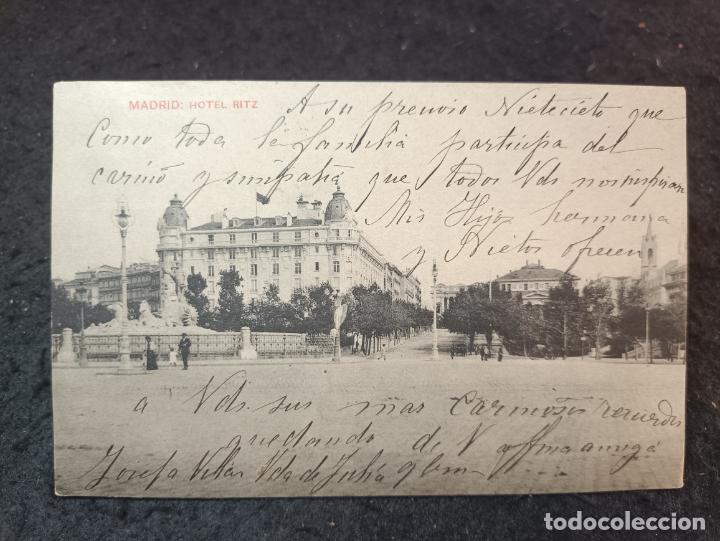 MADRID: HOTEL RITZ
A su precioso Nietecito que
Como toda la familia participa del
cariño y simpatia que todos Vds nos inspiran
Mis Hijos hermana
y Nietos ofrecen
a Vds. sus mas Cariñosos recuerdos
quedando de V affma amiga
Josefa Villar Vda de Juliá
todocoleccion.net